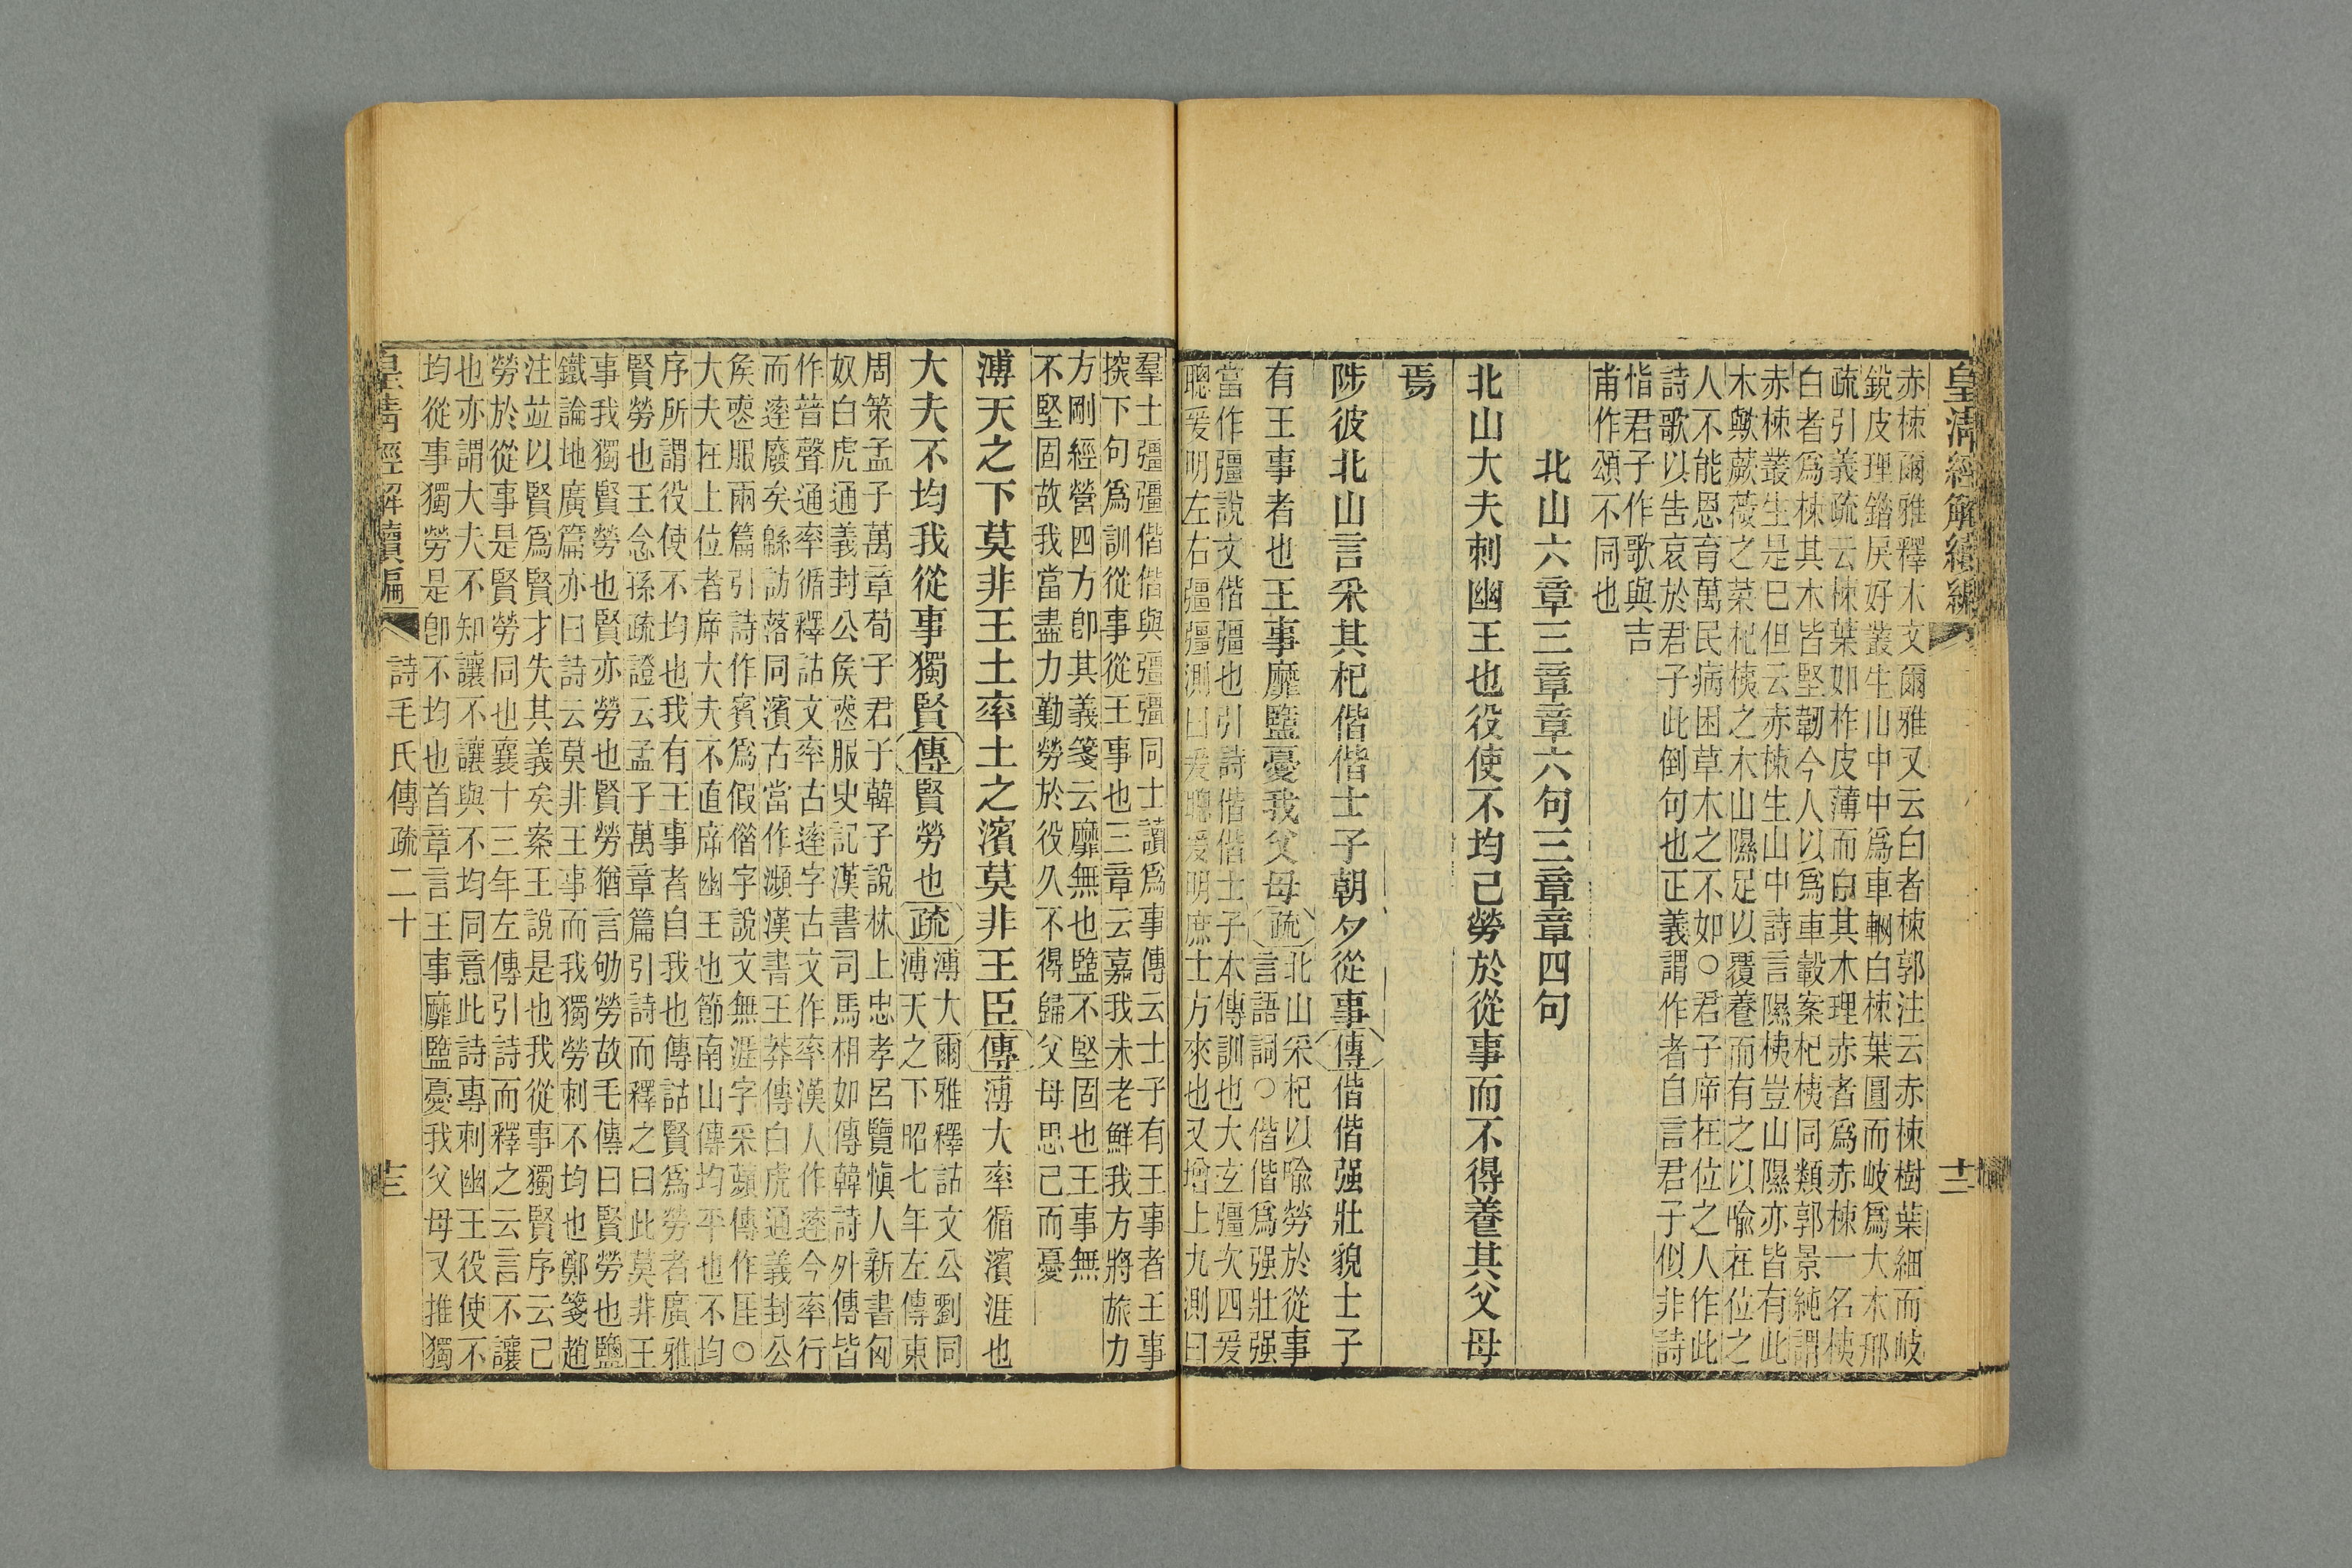 皇清經解續編
十二
赤棟爾雅釋木文爾雅又云白者棟郭注云赤棟樹葉細而岐
銳皮理錯戾好叢生山中中爲車輞白棟葉圓而岐爲大木邢
疏引義疏云棟葉如柞皮薄而白其木理赤者爲赤棟一名桋
白者爲棟其木皆堅韌今人以爲車轂案杞桋同類郭景純謂
赤棟叢生是巳但云赤棟生山中詩言隰桋豈山隰亦皆有此
木歟蕨薇之菜杞桋之木山隰足以覆養而有之以喩在位之
人不能恩育萬民病困草木之不如○君子席在位之人作此
詩歌以告哀於君子此倒句也正義謂作者自言君子似非詩
恉君子作歌與吉
甫作頌不同也
北山六章三章章六句三章章四句
北山大夫刺幽王也役使不均己勞於從事而不得養其父母
焉
陟彼北山言采其杞偕偕士子朝夕從事傳偕偕强壯貌士子
有王事者也王事靡盬憂我父母疏北山采杞以喩勞於從事
言語詞○偕偕爲强壯强
當作彊說文偕彊也引詩偕偕士子本傳訓也大玄彊次四爰
聰爰明左右彊彊測曰爰聰爰明庶士方來也又增上九測曰
羣士彊彊偕偕與彊彊同士讀爲事傳云士子有王事者王事
探下句爲訓從事從王事也三章云嘉我未老鮮我方將旅力
方剛經營四方卽其義箋云靡無也盬不堅固也王事無
不堅固故我當盡力勤勞於役久不得歸父母思己而憂
溥天之下莫非王土率土之濱莫非王臣傳溥大率循濱涯也
大夫不均我從事獨賢傳賢勞也疏溥大爾雅釋詁文公劉同
溥天之下昭七年左傳東
周策孟子萬章荀子君子韓子說林上忠孝呂覽愼人新書匈
奴白虎通義封公侯喪服史記漢書司馬相如傳韓詩外傳皆
作普聲通率循釋詁文率古達字古文作率漢人作達今率行
而達廢矣緜訪落同濱古當作瀕漢書王莽傳白虎通義封公
侯喪服兩篇引詩作賓爲假借字說文無涯字采蘋傳作厓○
大夫在上位者席大夫不直席幽王也節南山傳均平也不均
序所謂役使不均也我有王事者自我也傳詁賢爲勞者廣雅
賢勞也王念孫疏證云孟子萬章篇引詩而釋之曰此莫非王
事我獨賢勞也賢亦勞也賢勞猶言劬勞故毛傳曰賢勞也鹽
鐵論地廣篇亦曰詩云莫非王事而我獨勞刺不均也鄭箋趙
注竝以賢爲賢才失其義矣案王說是也我從事獨賢序云己
勞於從事是賢勞同也襄十三年左傳引詩而釋之云言不讓
也亦謂大夫不知讓不讓與不均同意此詩專刺幽王役使不
均從事獨勞是卽不均也首章言王事靡盬憂我父母又推獨
皇清經解續編
詩毛氏傳疏二十
十三